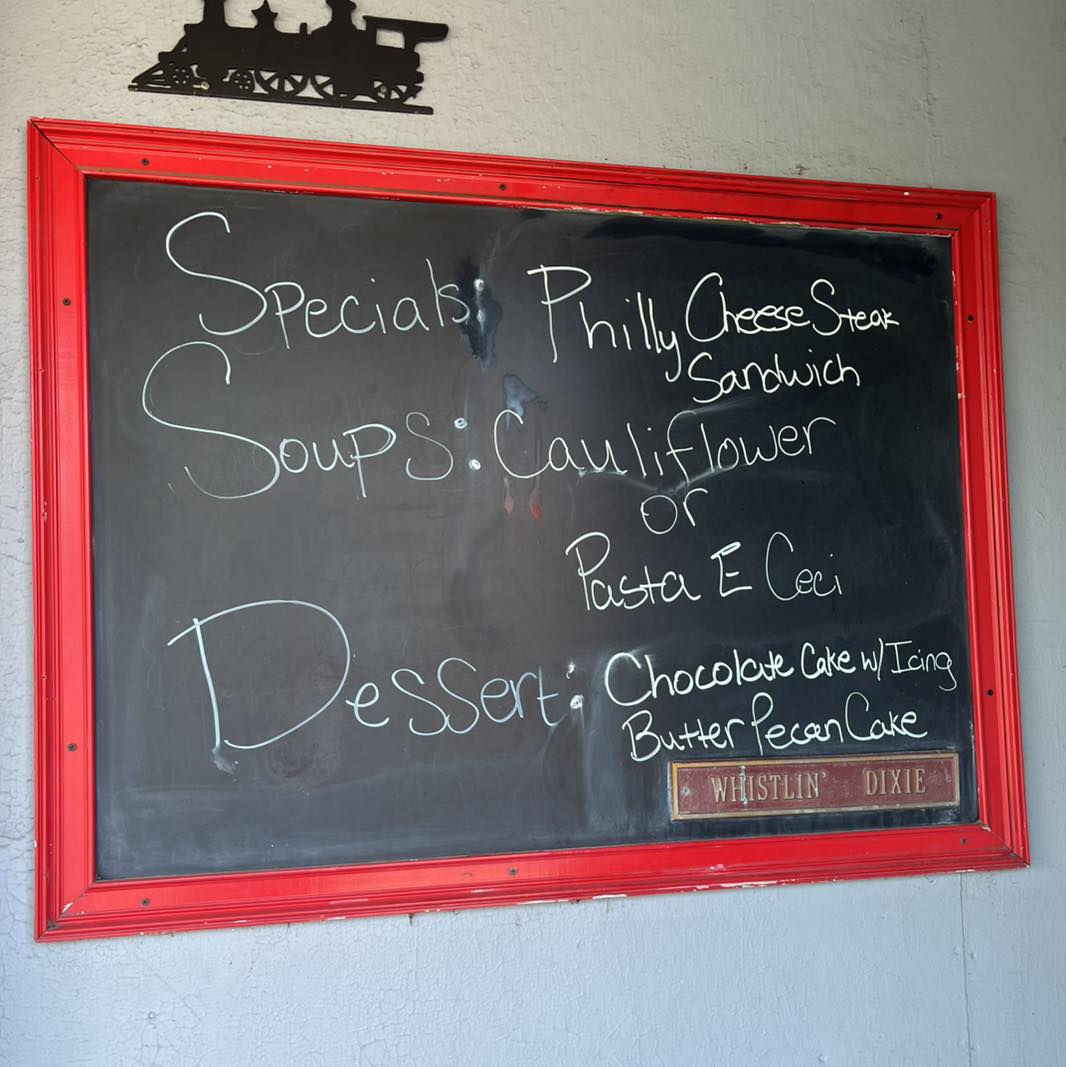 Specials: Philly Cheese Steak
Sandwich
Soups: Cauliflower
or
Pasta E Ceci
Dessert: Chocolate Cake w/ Icing
Butter Pecan Cake
WHISTLIN' DIXIE